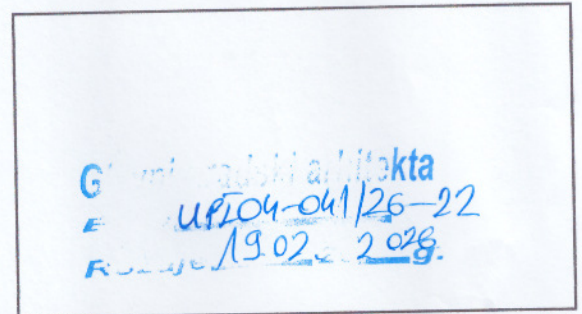 Glavni gradski arhitekta
UPI04-041/26-22
19.02. 2026 g.